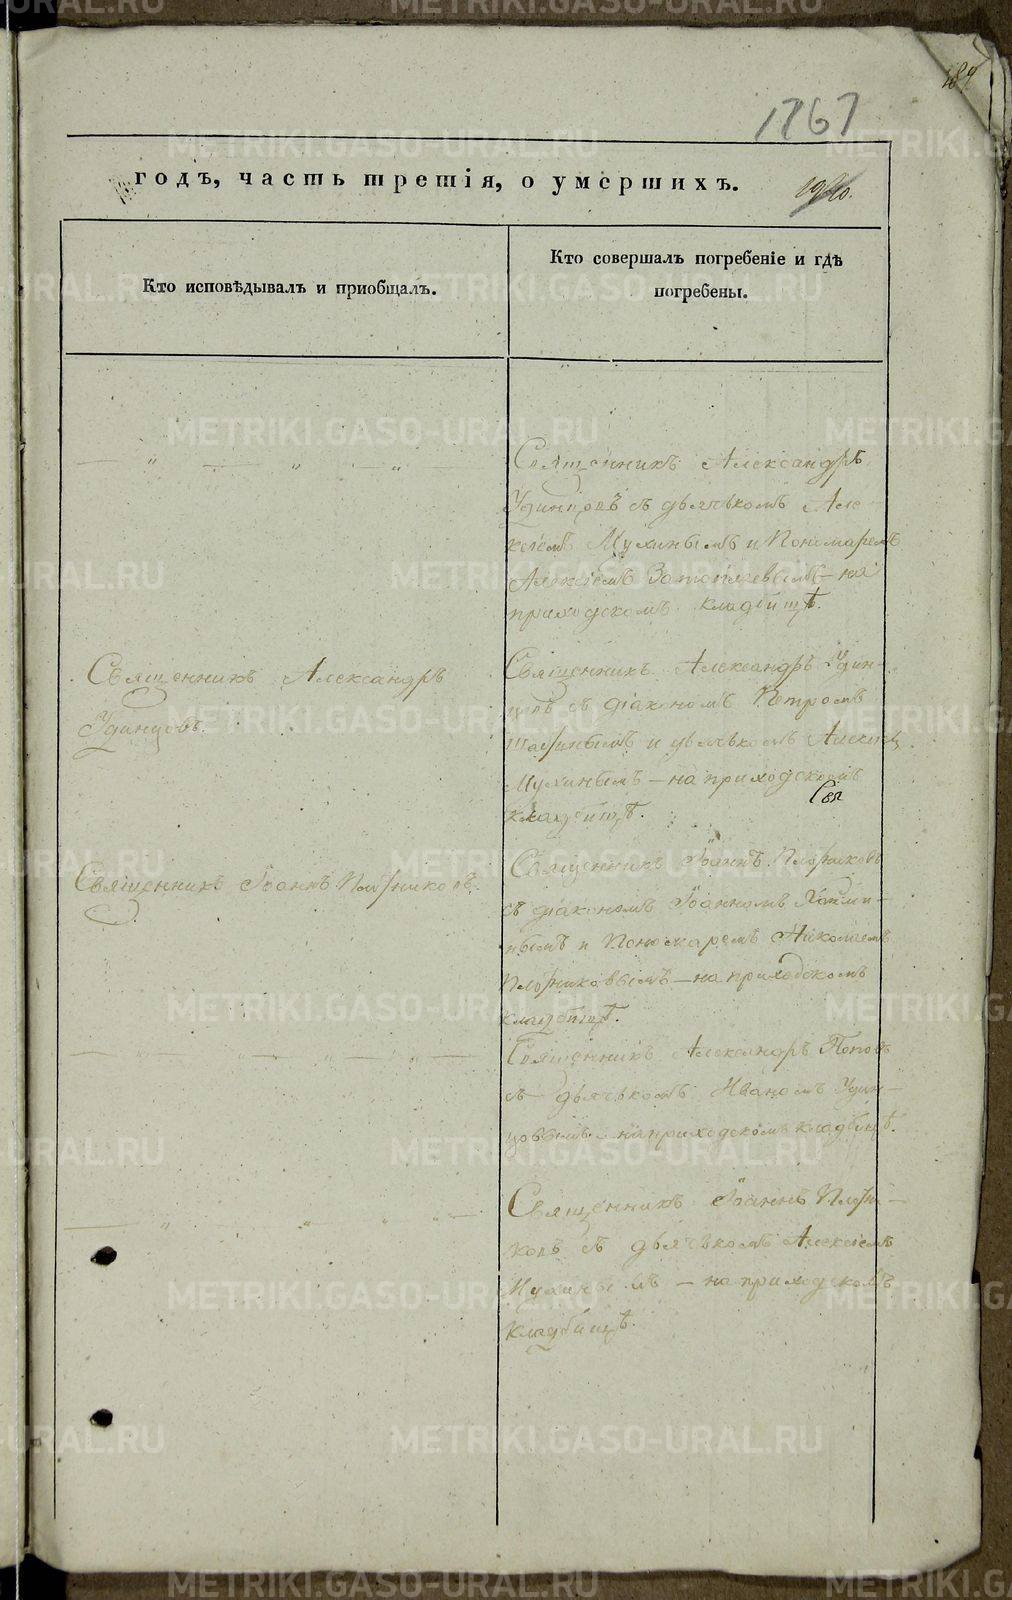 1767
годъ, часть третія, о умершихъ.
Кто исповѣдывалъ и пріобщалъ.
Кто совершалъ погребеніе и гдѣ
погребены.
Священникъ Александръ
Удинцовъ съ дьячькомъ Але-
ксіемъ Мухинымъ и Пономаремъ
Алексіемъ на
приходскомъ кладбищѣ.
Священникъ Александръ
Удинцовъ.
Священникъ Александръ Удин-
цовъ съ діакономъ Петромъ
и дьячькомъ
Мухинымъ – на приходскомъ
Свя
кладбищѣ.
Священникъ Іоаннъ Плотниковъ.
Священникъ Іоаннъ Плотниковъ
съ діакономъ Іоанномъ
и Пономаремъ Николаемъ
Плотниковымъ – на приходскомъ
кладбищѣ.
Священникъ Александръ Поповъ
съ дьячькомъ Иваномъ Удин-
цовымъ – на приходскомъ кладбищѣ.
Священникъ Іоаннъ Плотни-
ковъ съ дьячькомъ Алексіемъ
Мухинымъ – на приходскомъ
кладбищѣ.
METRIKI.GASO-URAL.RU